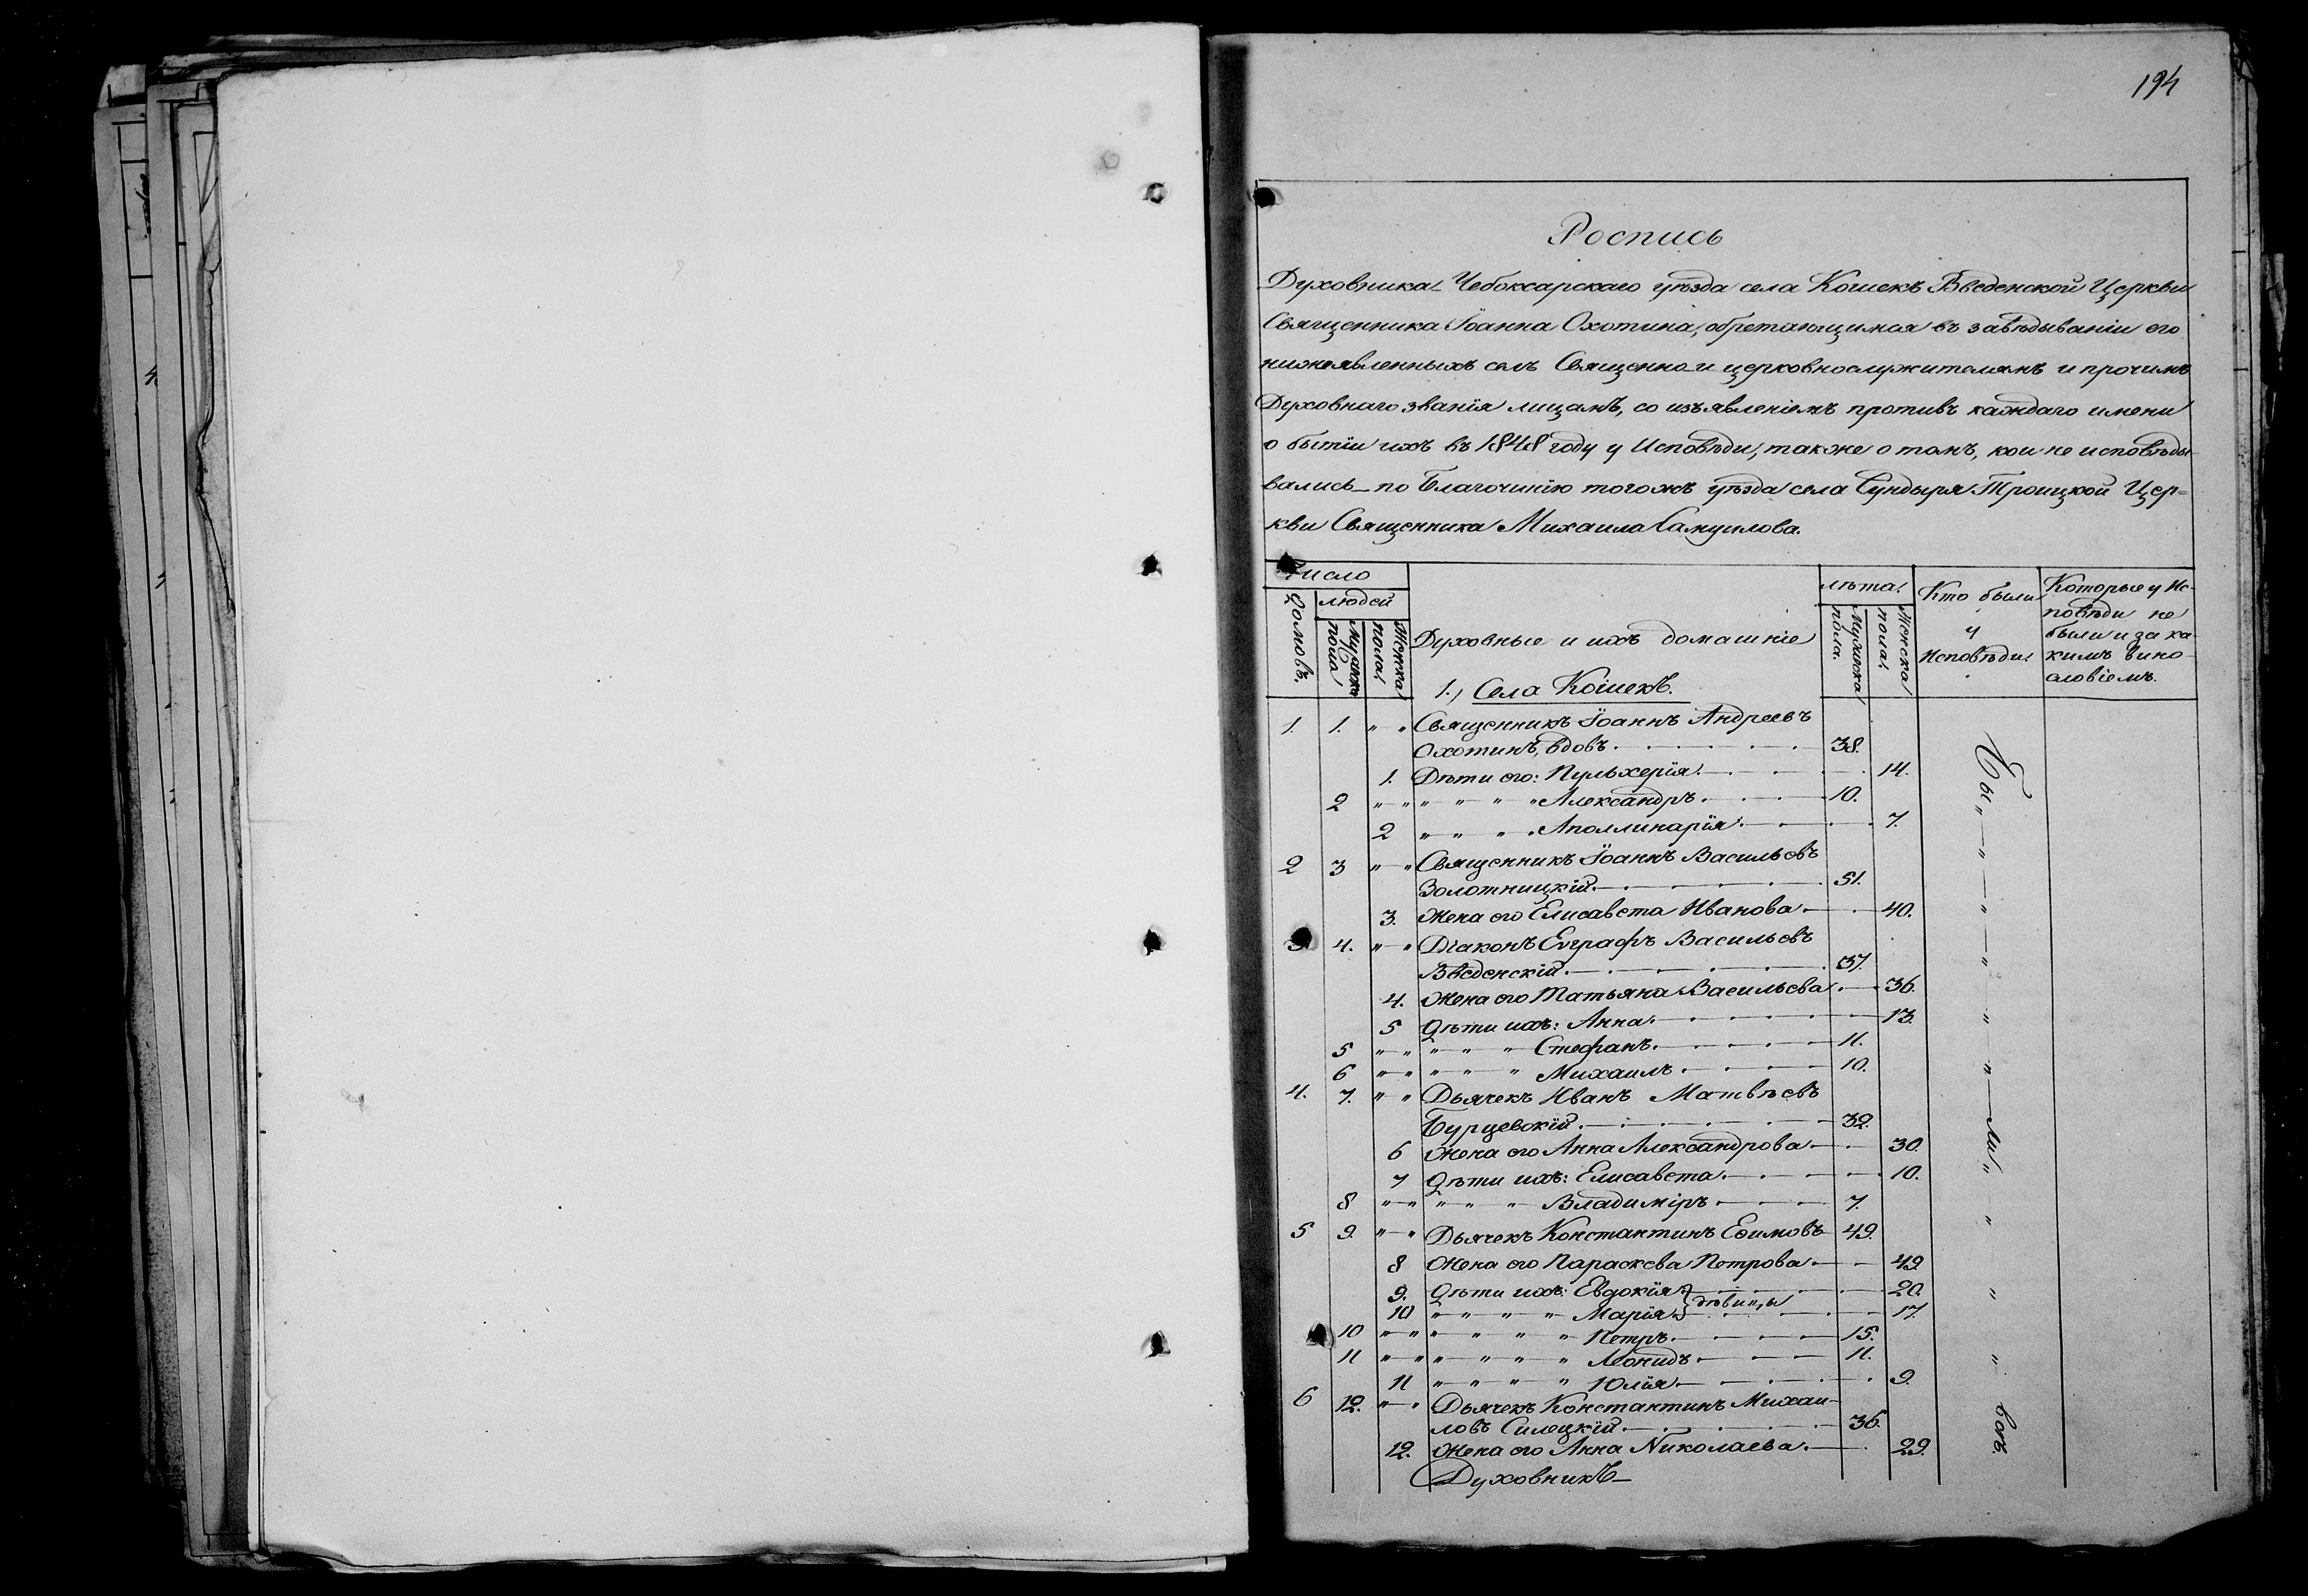 194
Роспись
Духовника Чебоксарскаго уѣзда села Кошекъ Введенской Церкви
Священника Іоанна Охотина, обретающимся въ завѣдываніи его
нижеявленныхъ селъ Священно и церковнослужителямъ и прочимъ
Духовнаго званія лицамъ, со изъявленіемъ противъ каждаго имени
о бытіи ихъ въ 1848 году у Исповѣди, также о томъ, кои не исповѣды-
вались по Благочинію тогожъ уѣзда села Сундыря Троицкой Цер=
кви Священника Михаила Самуилова.
Число лѣта. Кто были у Исповѣди. Которые у Ис-
повѣди не
были и за ка-
кимъ вино-
словіемъ.
Домовъ. людей Мужска пола Женска пола. Духовные и ихъ домашніе Мужеска пола. Женска пола.
1., Села Кошекъ.
1. 1. " " Священникъ Іоаннъ Андреевъ
Охотинъ, вдовъ. 38.
1. Дѣти его: Пульхерія. 14.
2 " " " " " " Александръ. 10.
2 " " " " Аполлинарія. 7.
2 3 " " Священникъ Іоаннъ Васильевъ
Золотницкій. 51.
3. Жена его Елисавета Иванова. 40.
3 4. " " Діаконъ Евграфъ Васильевъ
Введенскій. 37.
4. Жена его Татьяна Васильева. 36.
5 Дѣти ихъ: Анна. 13.
5 " " " " " Стефанъ. 11.
6 " " " " " Михаилъ. 10.
4. 7. " " Дьячекъ Иванъ Матвѣевъ
Бурцевскій. 32.
6 Жена его Анна Александрова. 30.
7 Дѣти ихъ: Елисавета. 10.
8 " " " " " Владиміръ. 7.
5 9. " " Дьячекъ Константинъ Ефимовъ 49.
8 Жена его Параскева Петрова. 49
9. Дѣти ихъ: Евдокія } дѣвицы 20.
10 " " " " Марія } 17.
10 " " " " " " Петръ. 15.
11 " " " " " " Леонидъ. 11.
11 " " " " Юлія. 9.
6 12. " " Дьячекъ Константинъ Михаи-
ловъ Силецкій. 36.
12. Жена его Анна Николаева. 29.
Духовникъ
Бы " " " " " " ли " " " " вск.